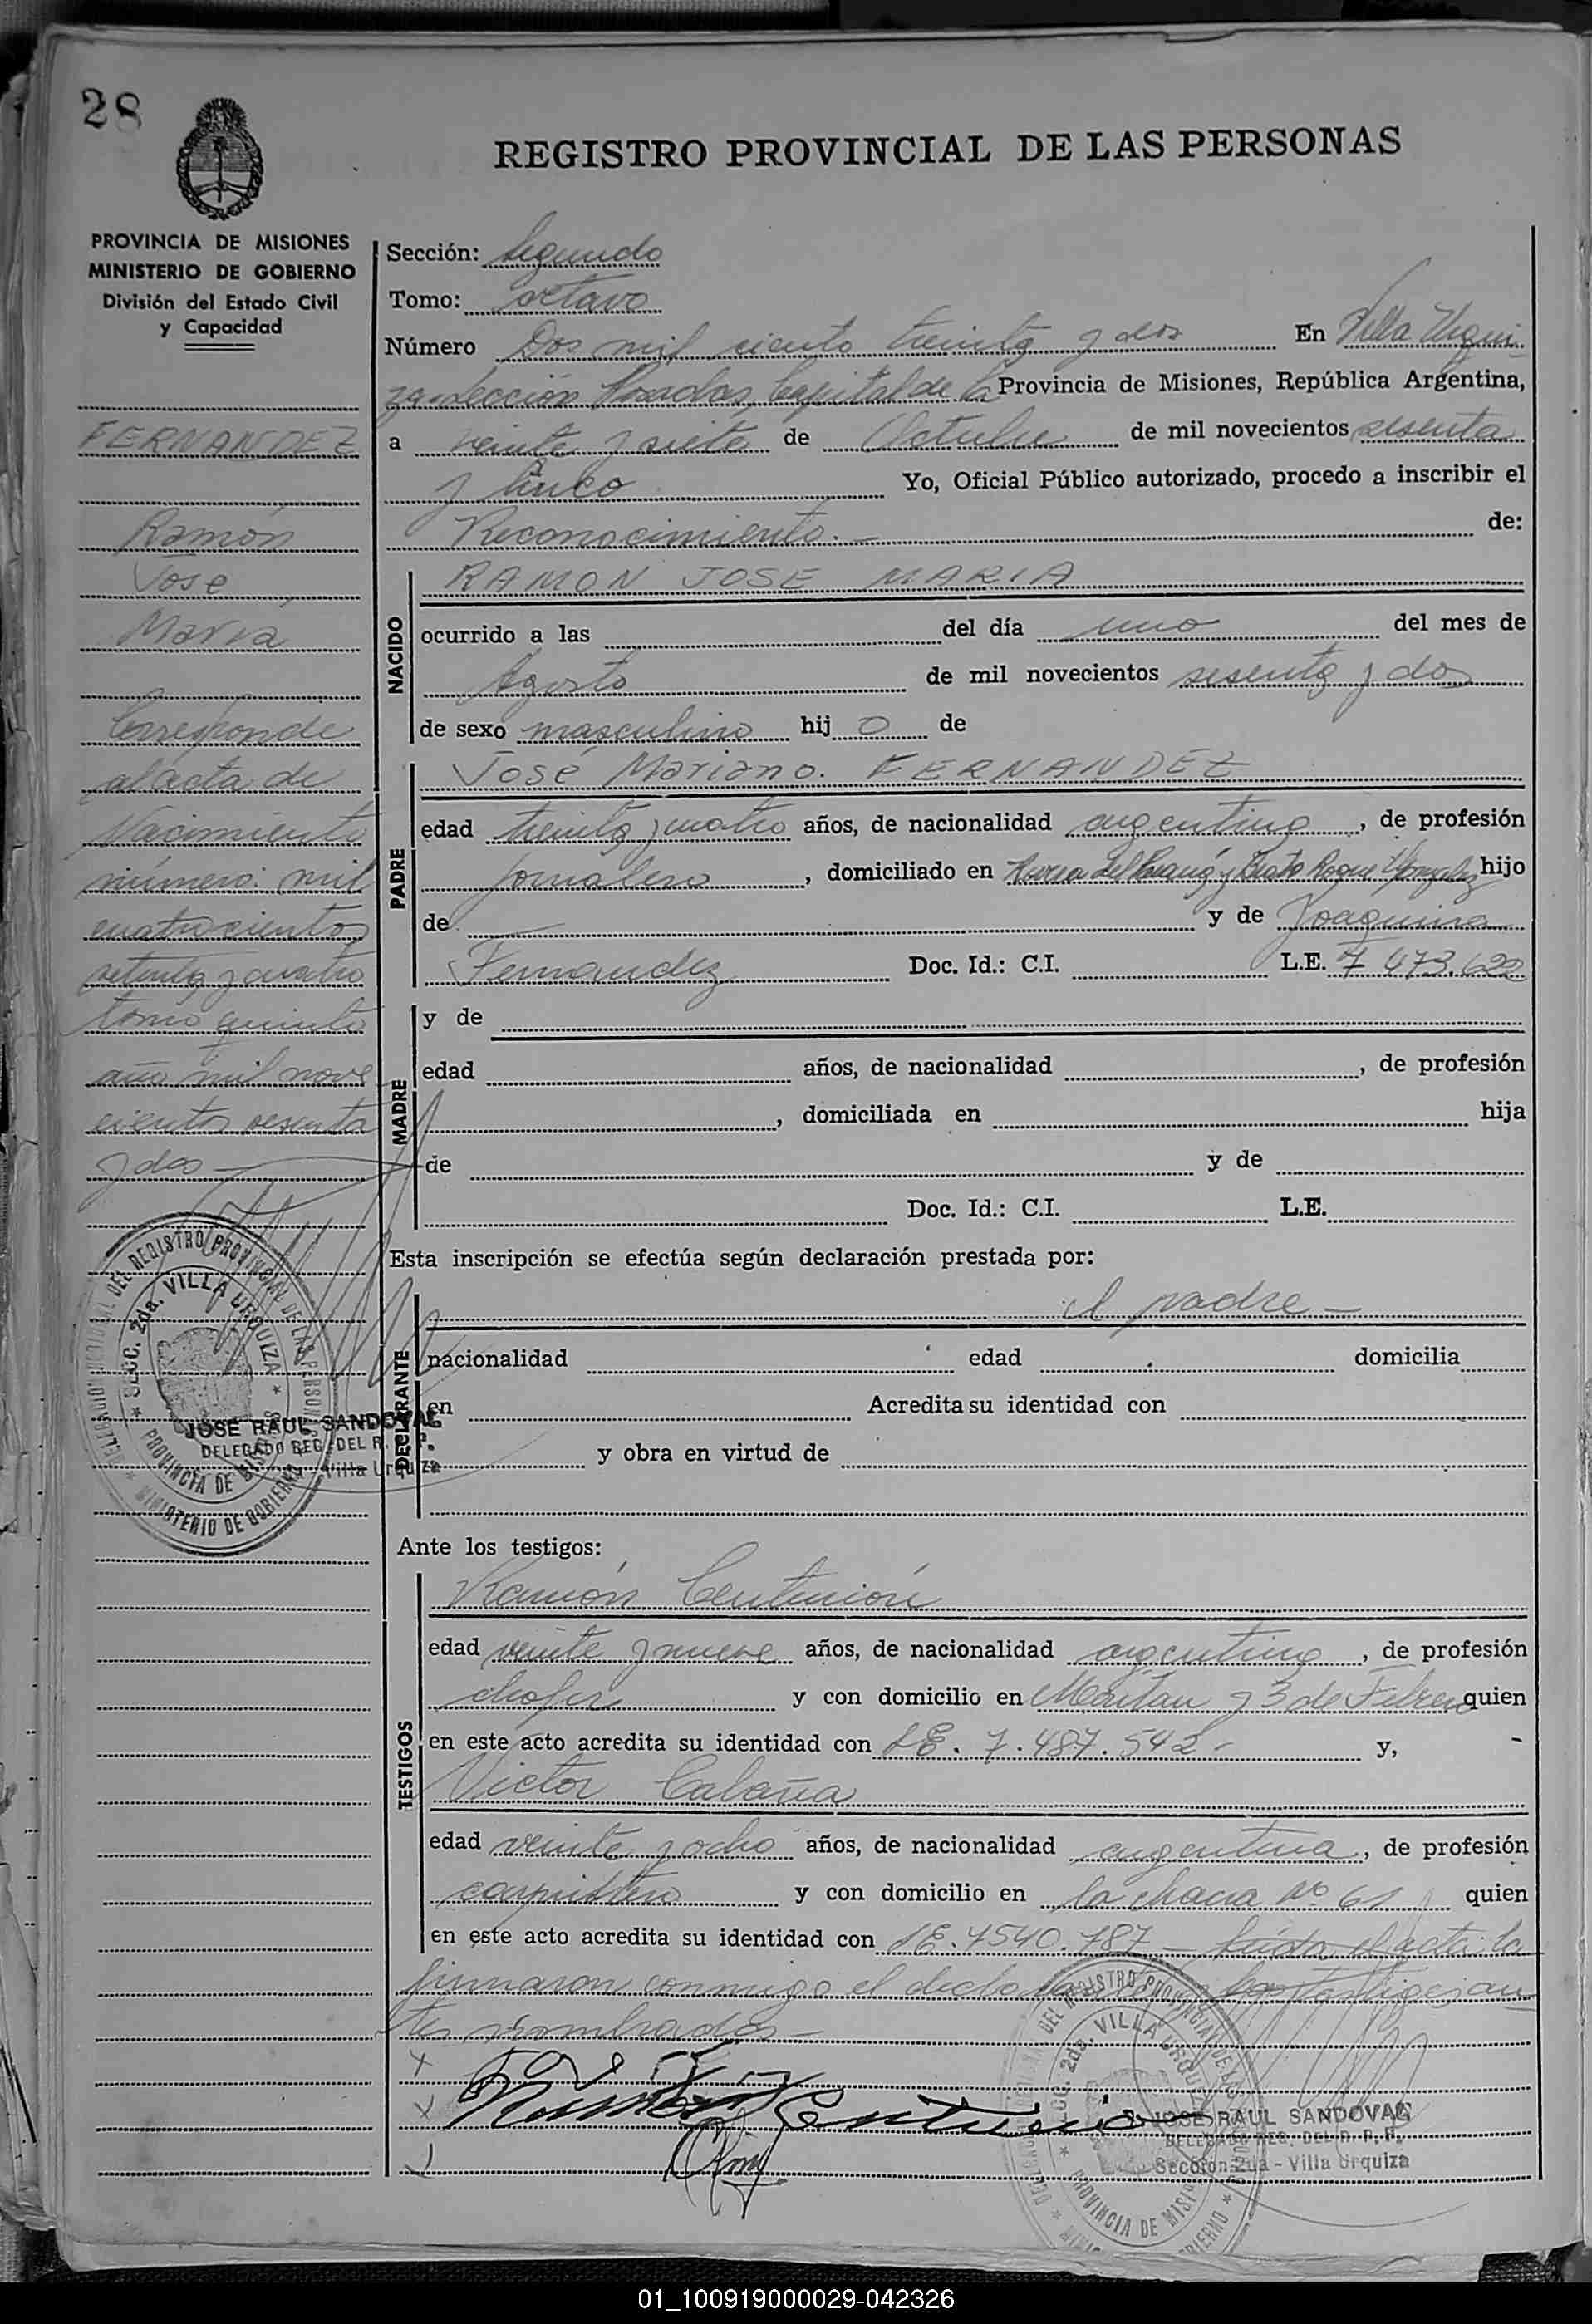 28
REGISTRO PROVINCIAL DE LAS PERSONAS
PROVINCIA DE MISIONES
MINISTERIO DE GOBIERNO
División del Estado Civil
y Capacidad
FERNANDEZ
Ramón
José
María
Corresponde
al acta de
Nacimiento
número: mil
cuatrocientos
setenta y cuatro
tomo quinto
año mil nove
cientos sesenta
y dos
Sección: Segundo
Tomo: octavo
Número Dos mil ciento treinta y dos En Villa Urqui-
za Sección Posadas, Capital de la Provincia de Misiones, República Argentina,
a veinte y siete de Octubre de mil novecientos sesenta
y cinco Yo, Oficial Público autorizado, procedo a inscribir el
Reconocimiento.- de:
NACIDO
RAMON JOSE MARIA
ocurrido a las del día uno del mes de
Agosto de mil novecientos sesenta y dos
de sexo masculino hij o de
PADRE
José Mariano. FERNANDEZ
edad treinta y cuatro años, de nacionalidad argentina, de profesión
jornalero, domiciliado en del Paraná y Beato Roque González hijo
de y de Joaquina
Fernandez Doc. Id.: C.I. L.E. 7 473.622
MADRE
y de
edad años, de nacionalidad , de profesión
, domiciliada en hija
de y de
Doc. Id.: C.I. L.E.
Esta inscripción se efectúa según declaración prestada por:
DECLARANTE
el padre -
nacionalidad edad domicilia
en Acredita su identidad con
y obra en virtud de
Ante los testigos:
TESTIGOS
Ramón Centurión
edad veinte y nueve años, de nacionalidad argentina, de profesión
chofer y con domicilio en y 3 de Febrero quien
en este acto acredita su identidad con LE. 7.487.542- y,
Victor Cabaña
edad veinte y ocho años, de nacionalidad argentina, de profesión
carpintero y con domicilio en la chacra Nº 61 quien
en este acto acredita su identidad con LE. 7540.787 - Leída el acta la
firmaron conmigo el declarante los testigos an-
tes nombrados -
Centurión
DEL REGISTRO PROVINCIAL DE LAS PERSONAS
SECC. 2da. VILLA URQUIZA
PROVINCIA DE MISIONES
MINISTERIO DE GOBIERNO
JOSE RAUL SANDOVAL
DELEGADO REG. DEL R. P. P.
Villa Urquiza
DEL REGISTRO PROVINCIAL DE LAS
2da. VILLA URQUIZA
PROVINCIA DE MISI
JOSE RAUL SANDOVAL
DELEGADO REG. DEL R. P. P.
Sección 2da - Villa Urquiza
01_100919000029-042326